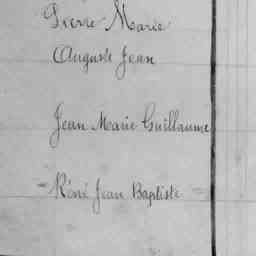 Pierre Marie
Auguste Jean
Jean Marie Guillaume
- Réné Jean Baptiste -